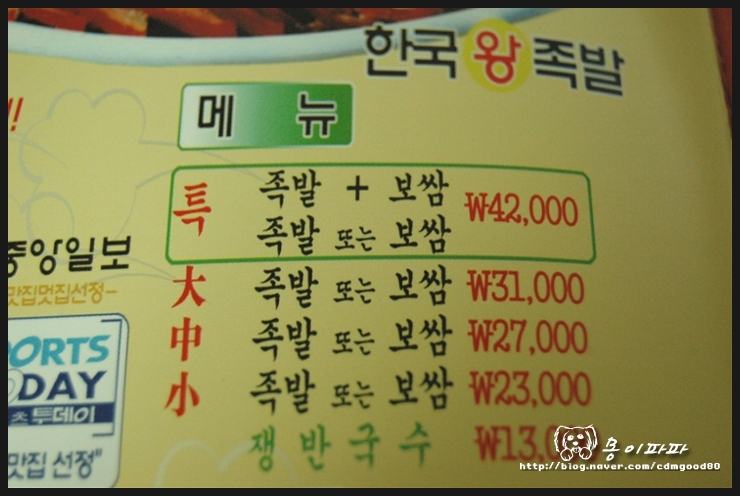 한국왕족발
메뉴
특 족발 + 보쌈 ₩42,000
족발 또는 보쌈
大 족발 또는 보쌈 ₩31,000
中 족발 또는 보쌈 ₩27,000
小 족발 또는 보쌈 ₩23,000
쟁반국수 ₩13,0
중앙일보
맛집멋집선정
ORTS
DAY
츠투데이
맛집 선정"
몽이파파
http://blog.naver.com/cdmgood80